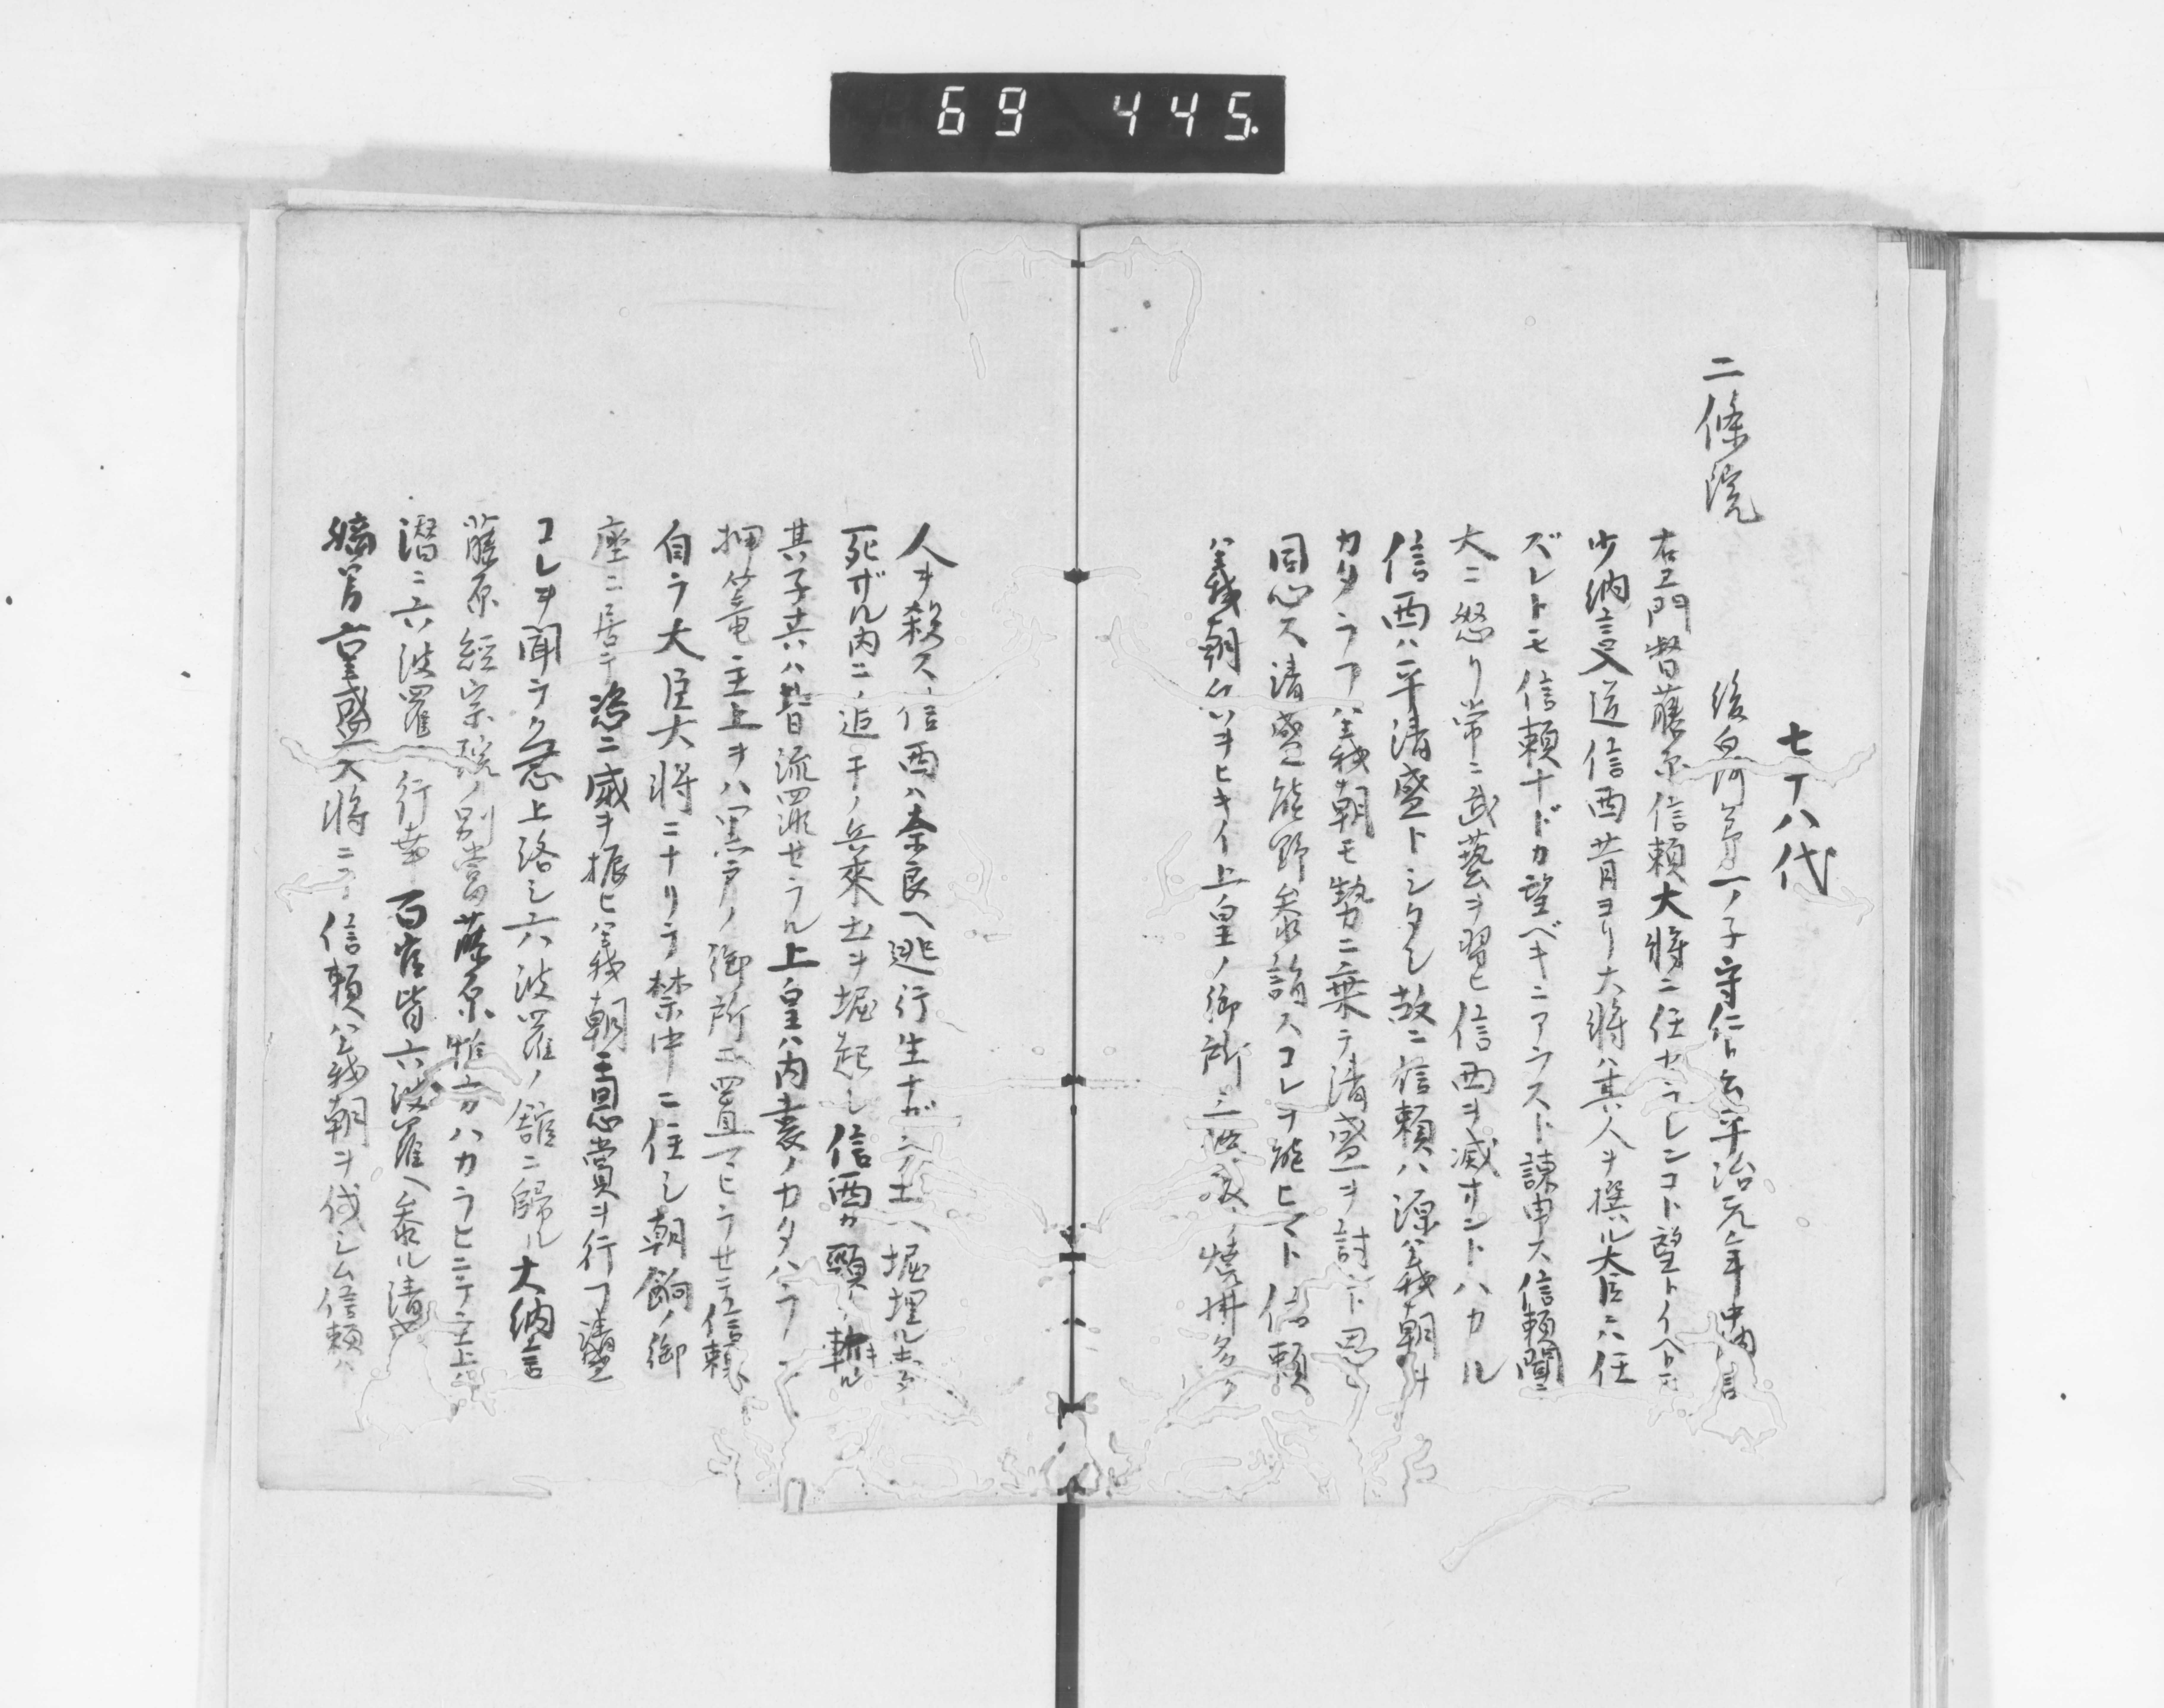 69 445.
七十八代
二條院
後白河第一ノ子守仁ト云平治元年中納言
右衛門督藤原信頼大將ニ任セラレンコト望トイヘトモ
少納言入道信西昔ヨリ大將ハ其人ヲ撰ル大臣ニハ任
ズレトモ信頼ナドカ望ベキニアラスト諌申ス信頼聞テ
大ニ怒リ常ニ武藝ヲ習ヒ信西ヲ滅サントハカル
信西ハ平清盛トシタシ故ニ信頼ハ源義朝ヲ
カタラフ義朝モ勢カニ乗テ清盛ヲ討ント思ヒ
同心ス清盛熊野参詣スコレヲ能ヒマト信頼
義朝軍ヲヒキイ上皇ノ御所三條殿ヲ燒拂多ク
人ヲ殺ス信西ハ奈良ヘ逃行生ナガラ土ヘ堀埋ル未タ
死ザル内ニ追手ノ兵來土ヲ堀起シ信西カ頸ヲ斬ル
其子共ハ皆流罪セラル上皇ハ内裏ノカタハラノ
押篭主上ヲハ黒戸ノ御所ニ置マヒラセテ信頼
自ラ大臣大將ニナリテ禁中ニ住シ朝餉ノ御
座ニ居テ恣ニ威ヲ振ヒ義朝等恩賞ヲ行フ清盛
コレヲ聞テ急上洛シ六波羅ノ舘ニ歸ル大納言
藤原經宗院ノ別當藤原惟方ハカラヒニテ主上
潜ニ六波羅ヘ行幸百官皆六波羅ヘ参ル清盛
嫡男重盛大將ニテ信頼義朝ヲ伐シム信頼ハ